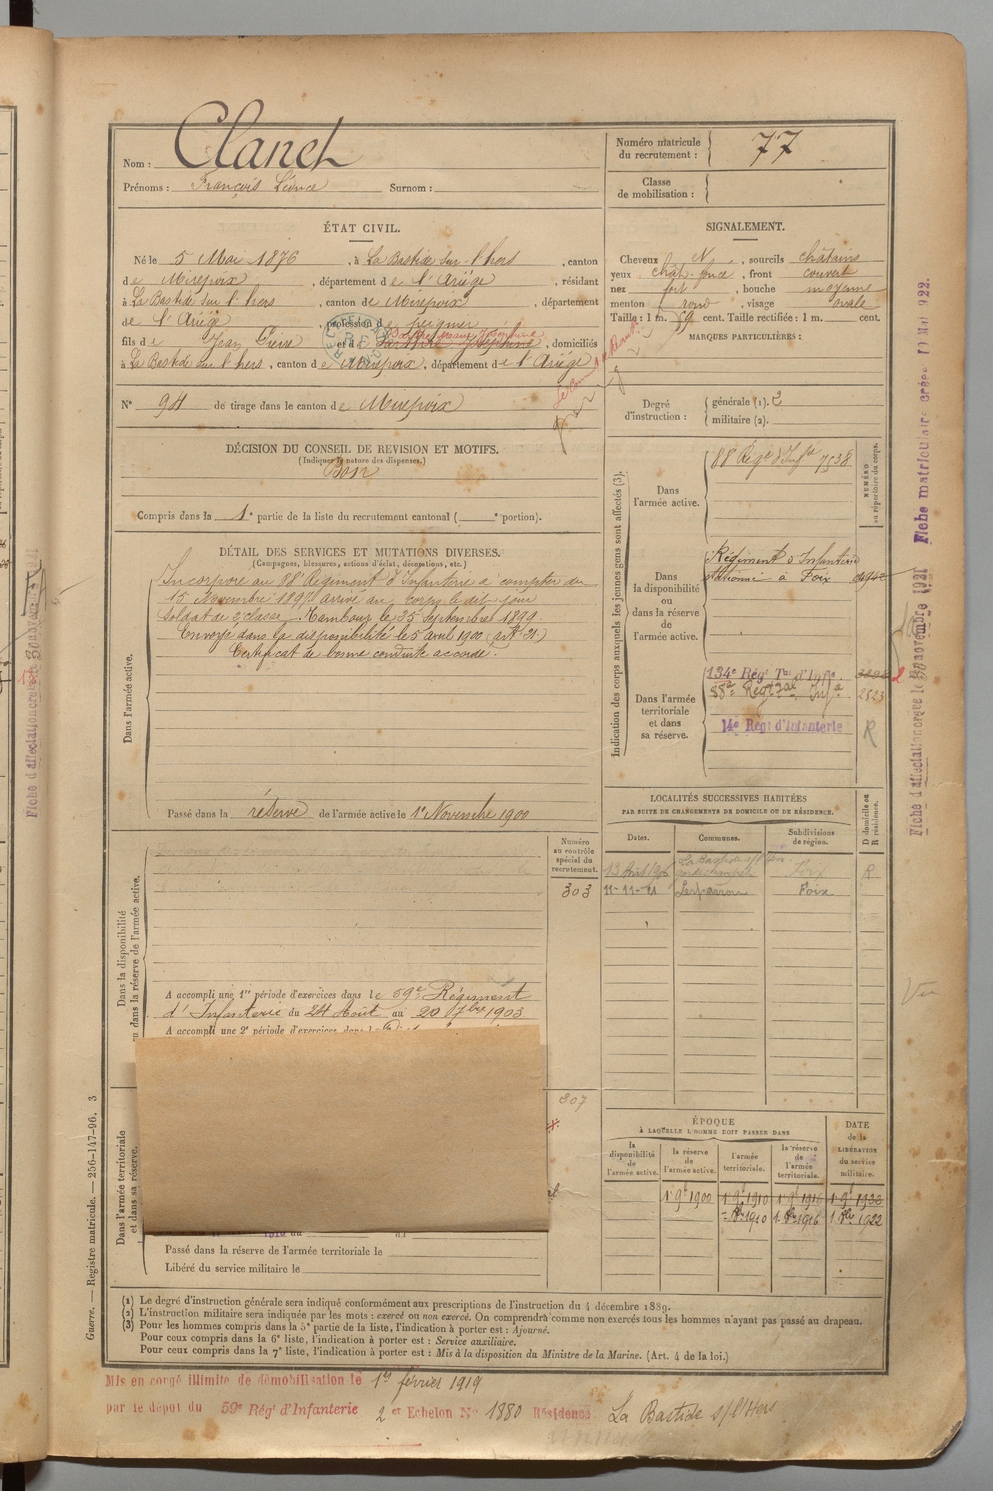 Nom : Clanet
Prénoms : François Léonce Surnom :
Numéro matricule du recrutement : 77
Classe de mobilisation :
ÉTAT CIVIL.
Né le 5 Mai 1876, à La Bastide sur l'hers, canton
de Mirepoix, département de l'Ariège, résidant
à La Bastide sur l'hers, canton de Mirepoix, département
de l'Ariège, profession de peigneur
fils de Jean Pierre et de Joséphine, domiciliés
à La Bastide sur l'hers, canton de Mirepoix, département de l'Ariège
N° 94 de tirage dans le canton de Mirepoix
SIGNALEMENT.
Cheveux N, sourcils châtains
yeux chât. foncé, front couvert
nez fort, bouche moyenne
menton rond, visage ovale
Taille : 1 m. 59 cent. Taille rectifiée : 1 m. cent.
MARQUES PARTICULIÈRES :
Degré d'instruction : générale (1). 2
militaire (2).
DÉCISION DU CONSEIL DE REVISION ET MOTIFS.
(Indiquer la nature des dispenses.)
Bon
Compris dans la 1e partie de la liste du recrutement cantonal ( e portion).
DÉTAIL DES SERVICES ET MUTATIONS DIVERSES.
(Campagnes, blessures, actions d'éclat, décorations, etc.)
Dans l'armée active.
Incorporé au 88e Régiment d'Infanterie à compter du
15 Novembre 1897 arrivé au corps le dit jour
soldat de 2e classe. Tambour le 25 Septembre 1899.
Envoyé dans la disponibilité le 5 avril 1900 (art. 21.)
Certificat de bonne conduite accordé.
Passé dans la réserve de l'armée active le 1er Novembre 1900
Indication des corps auxquels les jeunes gens sont affectés (3).
NUMÉRO au répertoire du corps.
Dans l'armée active.
88 Régt d'Infie 7538
Dans la disponibilité ou dans la réserve de l'armée active.
Régiment d'Infanterie
stationné à Foix
Dans l'armée territoriale et dans sa réserve.
134e Régt Tal d'Infie
88e Regt Tal Infie 2523
14e Régt d'Infanterie R
Dans la disponibilité ou dans la réserve de l'armée active.
Numéro au contrôle spécial du recrutement.
303
A accompli une 1re période d'exercices dans le 59e Régiment
d'Infanterie du 24 Août au 20 7bre 1903
A accompli une 2e période d'exercices dans le
307
LOCALITÉS SUCCESSIVES HABITÉES
PAR SUITE DE CHANGEMENTS DE DOMICILE OU DE RÉSIDENCE.
D domicile ou R résidence.
Dates. Communes. Subdivisions de région.
Foix R
11-11-21 Lesparrou Foix
ÉPOQUE
À LAQUELLE L'HOMME DOIT PASSER DANS
la disponibilité de l'armée active. la réserve de l'armée active. l'armée territoriale. la réserve de l'armée territoriale. DATE de la LIBÉRATION du service militaire.
1 9bre 1900 1 9bre 1910 1 9bre 1916
1910 1916 1922
Dans l'armée territoriale et dans sa réserve.
Passé dans la réserve de l'armée territoriale le
Libéré du service militaire le
(1) Le degré d'instruction générale sera indiqué conformément aux prescriptions de l'instruction du 4 décembre 1889.
(2) L'instruction militaire sera indiquée par les mots : exercé ou non exercé. On comprendra comme non exercés tous les hommes n'ayant pas passé au drapeau.
(3) Pour les hommes compris dans la 5e partie de la liste, l'indication à porter est : Ajourné.
Pour ceux compris dans la 6e liste, l'indication à porter est : Service auxiliaire.
Pour ceux compris dans la 7e liste, l'indication à porter est : Mis à la disposition du Ministre de la Marine. (Art. 4 de la loi.)
Mis en congé illimité de démobilisation le 1er février 1919
par le dépôt du 59e Régt d'Infanterie 2er Echelon No 1880 Résidence La Bastide s/l'Hers
Guerre. — Registre matricule. — 256-147-96. 3
Fiche d'affectation créée le 30 novembre 1921
Fiche matriculaire créée
Vu